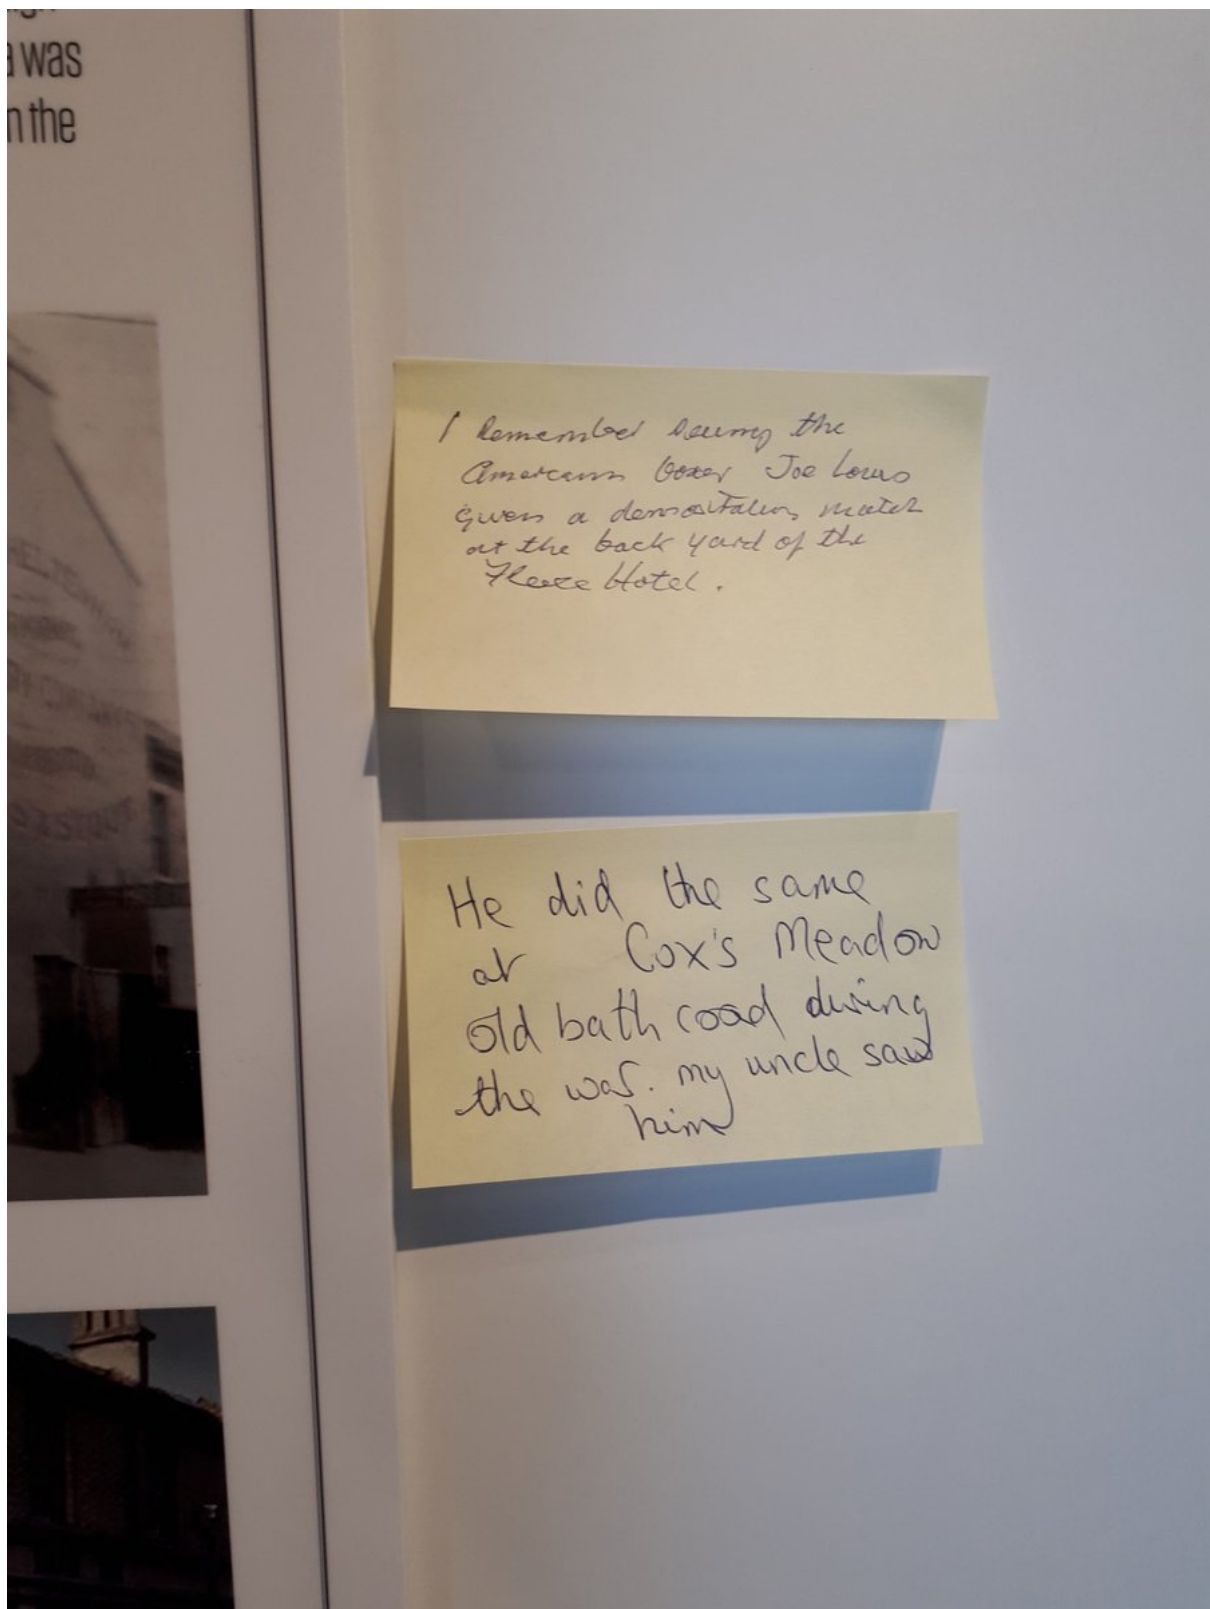 a was
n the
I Remember seeing the
American boxer Joe Louis
given a demonstration match
at the back yard of the
Fleece Hotel.
He did the same
at Cox's Meadow
old bath road during
the war. my uncle saw
him